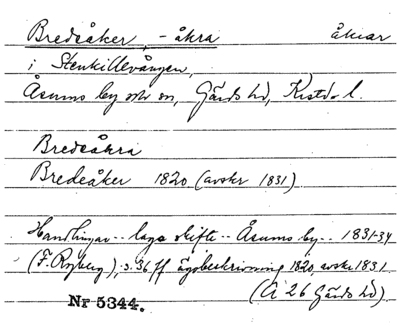 Bredeåker, -åkra åkrar
i Stenkillevången,
Åsums by och sn, Gärds hd, Kristds l.
Bredeåkra
Bredeåker 1820 (avskr 1831)
Handlingar .. laga skifte .. Åsums by .. 1831-34
(F. Ryberg), s. 36 ff ägobeskrivning 1820, avskr 1831
(Ä 26 Gärds hd)
Nr 5344.